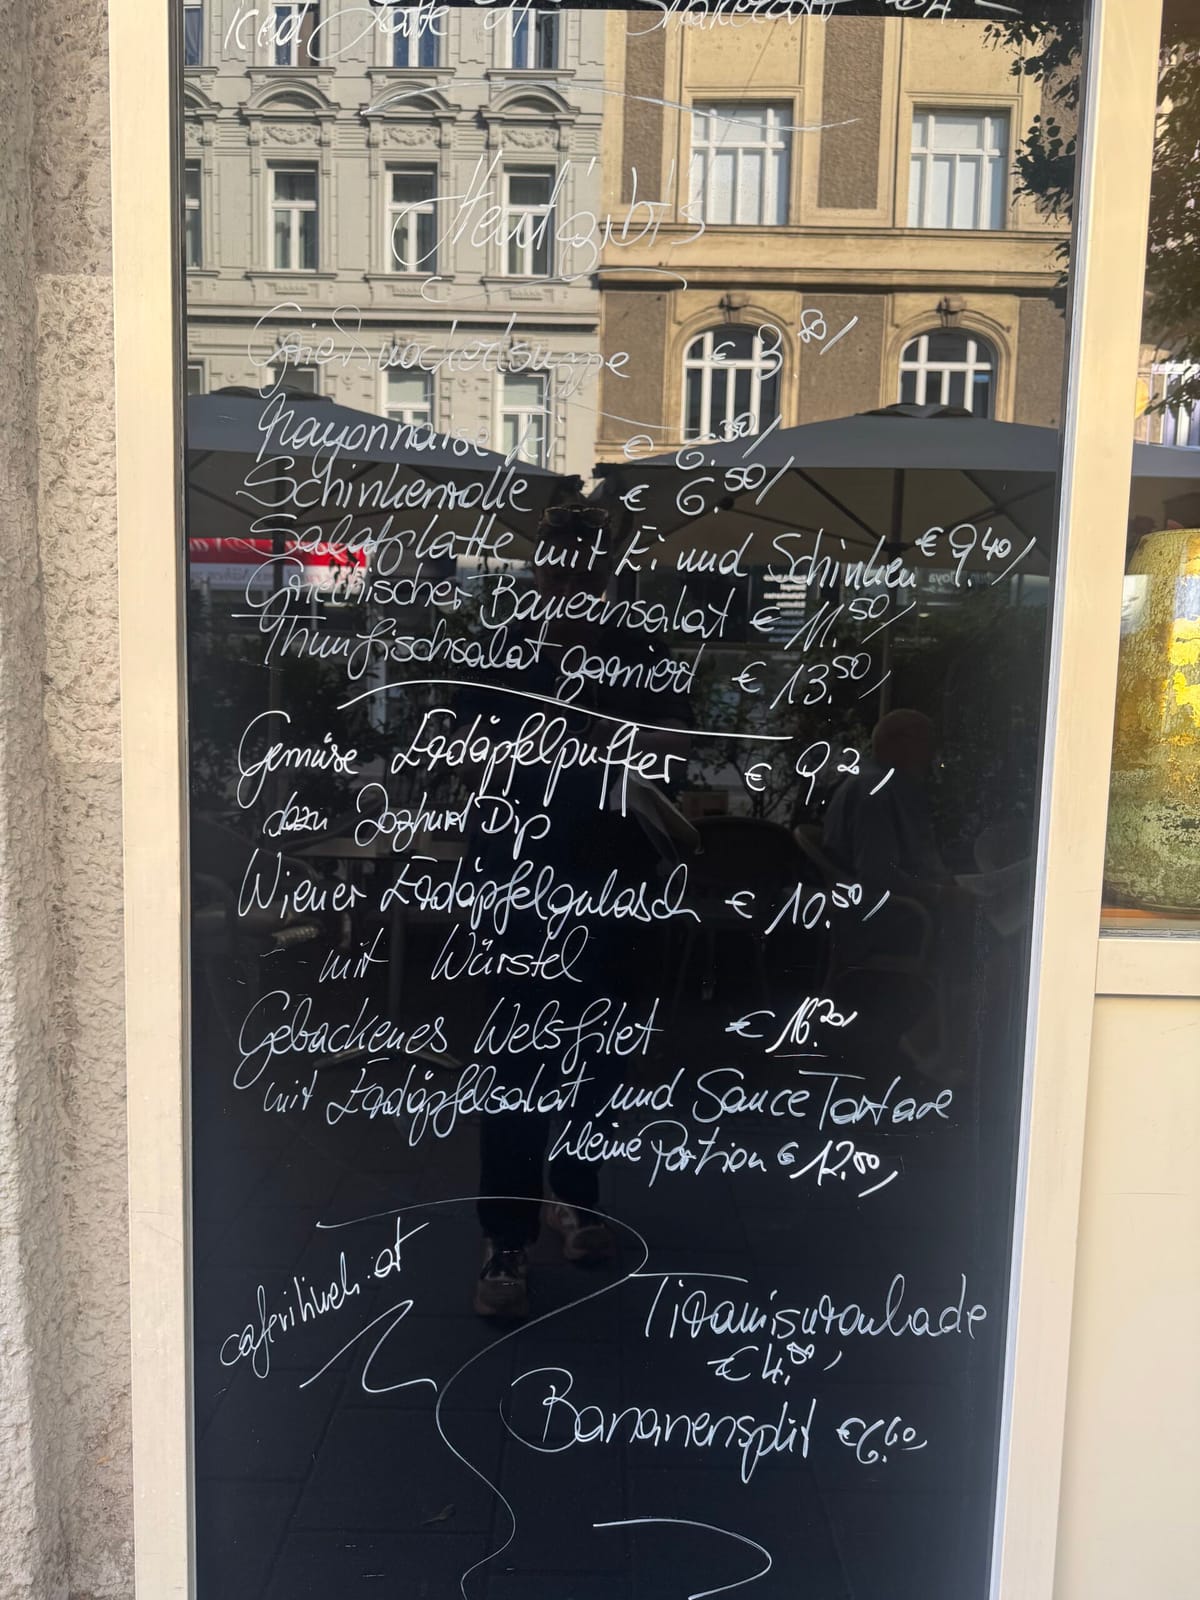 Iced
Heut gibt's
Grießnockerlsuppe € 3.80
Mayonnaise Ei € 6.30
Schinkenrolle € 6.50
Salatplatte mit Ei und Schinken € 9.40
Griechischer Bauernsalat € 11.50
Thunfischsalat garniert € 13.50
Gemüse Erdäpfelpuffer € 9.20
dazu Joghurt Dip
Wiener Erdäpfelgulasch € 10.50
mit Würstel
Gebackenes Welsfilet € 16.20
mit Erdäpfelsalat und Sauce Tartare
kleine Portion € 12.80
caferitimeh.at
Tiramisuroulade
€ 4.80
Bananensplit € 6.60